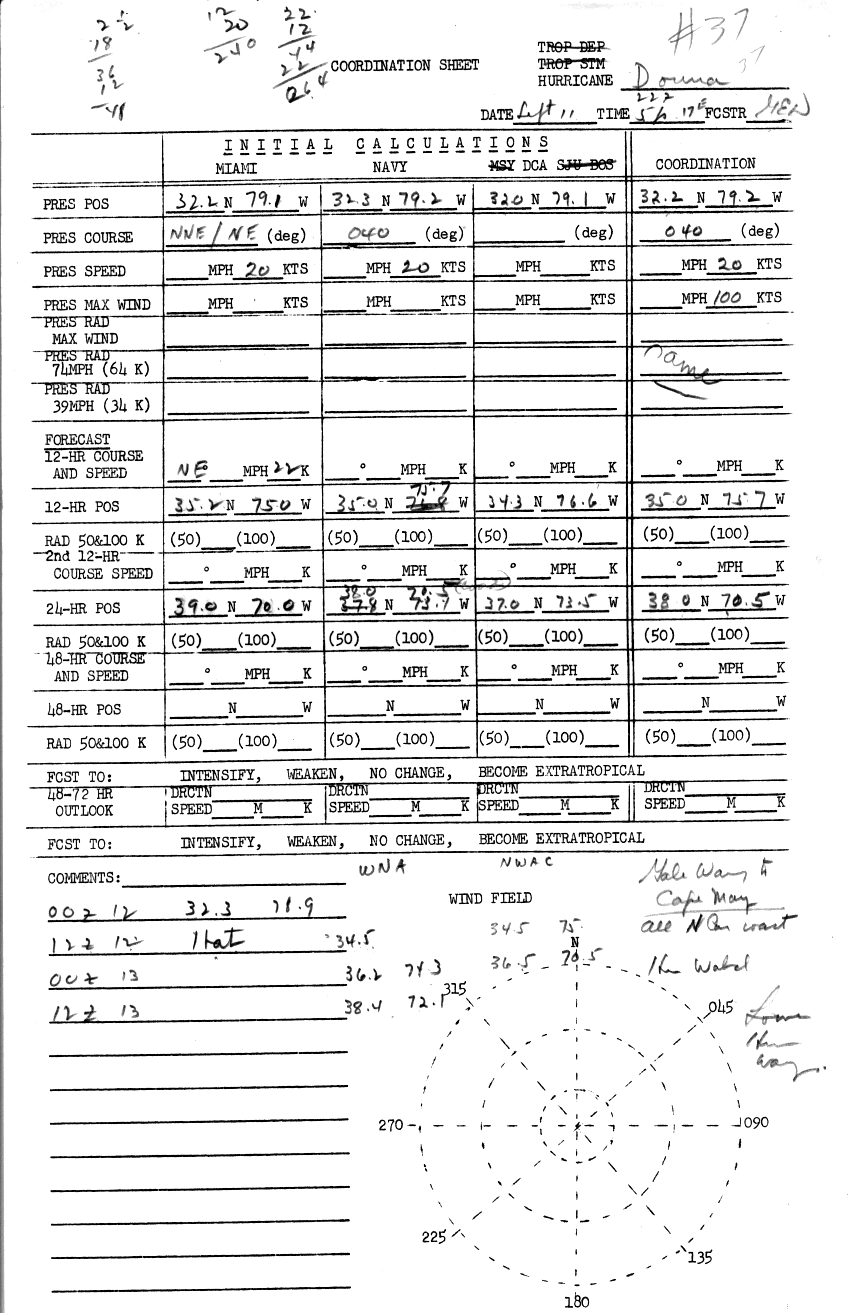 2 1/2
18
36
12
12
20
240
22
12
44
22
264
#37
37
COORDINATION SHEET
TROP DEP
TROP STM
HURRICANE Donna
DATE Sept 11 TIME 222 17E FCSTR
INITIAL CALCULATIONS
MIAMI NAVY MSY DCA SJU BOS COORDINATION
PRES POS 32.2 N 79.1 W 32.3 N 79.2 W 32.0 N 79.1 W 32.2 N 79.2 W
PRES COURSE NNE/NE (deg) 040 (deg) (deg) 040 (deg)
PRES SPEED MPH 20 KTS MPH 20 KTS MPH KTS MPH 20 KTS
PRES MAX WIND MPH KTS MPH KTS MPH KTS MPH 100 KTS
PRES RAD
MAX WIND
PRES RAD
74MPH (64 K) same
PRES RAD
39MPH (34 K)
FORECAST
12-HR COURSE
AND SPEED NE° MPH 22 K ° MPH K ° MPH K ° MPH K
75.7
12-HR POS 35.2 N 75.0 W 35.0 N W 34.3 N 76.6 W 35.0 N 75.7 W
RAD 50&100 K (50) (100) (50) (100) (50) (100) (50) (100)
2nd 12-HR
COURSE SPEED ° MPH K ° MPH K ° MPH K ° MPH K
38.0 70.5
24-HR POS 39.0 N 70.0 W 37.8 N 73.7 W 37.0 N 73.5 W 38 0 N 70.5 W
RAD 50&100 K (50) (100) (50) (100) (50) (100) (50) (100)
48-HR COURSE
AND SPEED ° MPH K ° MPH K ° MPH K ° MPH K
48-HR POS N W N W N W N W
RAD 50&100 K (50) (100) (50) (100) (50) (100) (50) (100)
FCST TO: INTENSIFY, WEAKEN, NO CHANGE, BECOME EXTRATROPICAL
48-72 HR DRCTN DRCTN DRCTN DRCTN
OUTLOOK SPEED M K SPEED M K SPEED M K SPEED M K
FCST TO: INTENSIFY, WEAKEN, NO CHANGE, BECOME EXTRATROPICAL
COMMENTS: WNA NWAC Gale Warng to
WIND FIELD Cape May
00Z 12 32.3 78.9 34.5 75. all N Car coast
12Z 12 Hat 34.5 N
00Z 13 36.2 74.3 36.5 70.5
12Z 13 38.4 72.1
315 045
Lower
Hur
Warng.
270 090
225 135
180